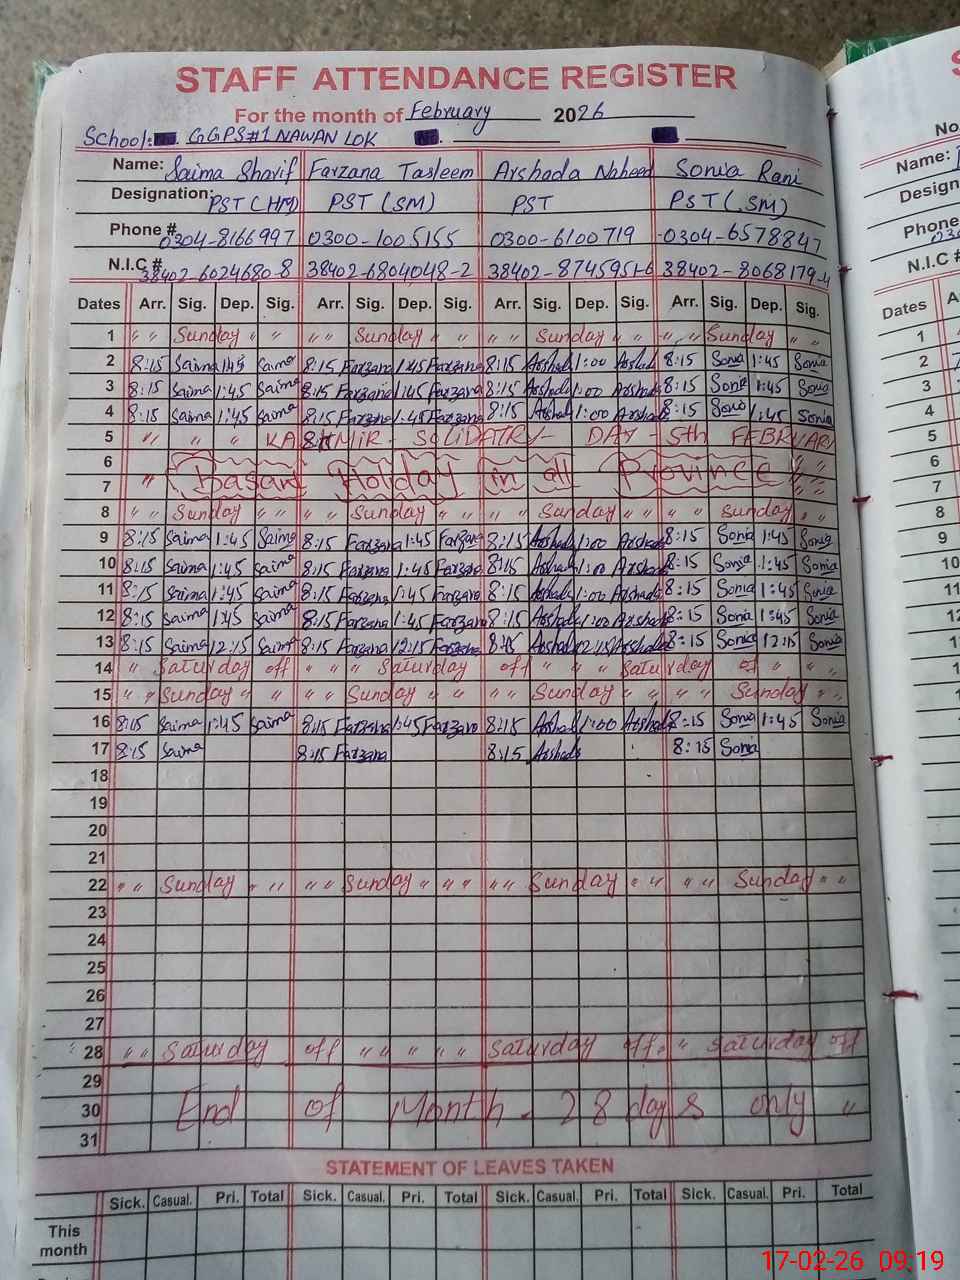 STAFF ATTENDANCE REGISTER
For the month of February 2026
School: GGPS#1 NAWAN LOK
No.
Name: Saima Sharif Farzana Tasleem Arshada Naheed Sonia Rani
Name:
Designation: PST (HM) PST (SM) PST PST (SM)
Design
Phone # 0304-8166997 0300-1005155 0300-6100719 0304-6578847
Phone
N.I.C # 38402-6024680-8 38402-6804048-2 38402-8745951-6 38402-8068179-4
N.I.C #
Dates Arr. Sig. Dep. Sig. Arr. Sig. Dep. Sig. Arr. Sig. Dep. Sig. Arr. Sig. Dep. Sig.
Dates
1 " " Sunday " " " " Sunday " " " " Sunday " " " " Sunday " "
2 8:15 Saima 1:45 Saima 8:15 Farzana 1:45 Farzana 8:15 Arshada 1:00 Arshada 8:15 Sonia 1:45 Sonia
3 8:15 Saima 1:45 Saima 8:15 Farzana 1:45 Farzana 8:15 Arshada 1:00 Arshada 8:15 Sonia 1:45 Sonia
4 8:15 Saima 1:45 Saima 8:15 Farzana 1:45 Farzana 8:15 Arshada 1:00 Arshada 8:15 Sonia 1:45 Sonia
5 " " " KASHMIR - SOLIDATRY - DAY - 5th FEBRUARY
6
7 " Basant Holiday in all Province " "
8 " " Sunday " " " " Sunday " " " " Sunday " " " " Sunday " "
9 8:15 Saima 1:45 Saima 8:15 Farzana 1:45 Farzana 8:15 Arshada 1:00 Arshada 8:15 Sonia 1:45 Sonia
10 8:15 Saima 1:45 Saima 8:15 Farzana 1:45 Farzana 8:15 Arshada 1:00 Arshada 8:15 Sonia 1:45 Sonia
11 8:15 Saima 1:45 Saima 8:15 Farzana 1:45 Farzana 8:15 Arshada 1:00 Arshada 8:15 Sonia 1:45 Sonia
12 8:15 Saima 1:45 Saima 8:15 Farzana 1:45 Farzana 8:15 Arshada 1:00 Arshada 8:15 Sonia 1:45 Sonia
13 8:15 Saima 12:15 Saima 8:15 Farzana 12:15 Farzana 8:15 Arshada 12:15 Arshada 8:15 Sonia 12:15 Sonia
14 " Saturday off " " " Saturday off " " " Saturday off " " "
15 " " Sunday " " " " Sunday " " " " Sunday " " " " Sunday " "
16 8:15 Saima 1:45 Saima 8:15 Farzana 1:45 Farzana 8:15 Arshada 1:00 Arshada 8:15 Sonia 1:45 Sonia
17 8:15 Saima 8:15 Farzana 8:15 Arshada 8:15 Sonia
18
19
20
21
22 " " Sunday " " " " Sunday " " " " " Sunday " " " " Sunday " "
23
24
25
26
27
28 " " Saturday off " " " " " Saturday off. " Saturday off
29
30 End of Month. 28 days only "
31
1
2
3
4
5
6
7
8
9
10
11
12
13
14
15
16
17
18
19
20
21
22
23
24
25
26
27
28
29
30
31
STATEMENT OF LEAVES TAKEN
Sick. Casual. Pri. Total Sick. Casual. Pri. Total Sick. Casual. Pri. Total Sick. Casual. Pri. Total
This month
17-02-26 09:19